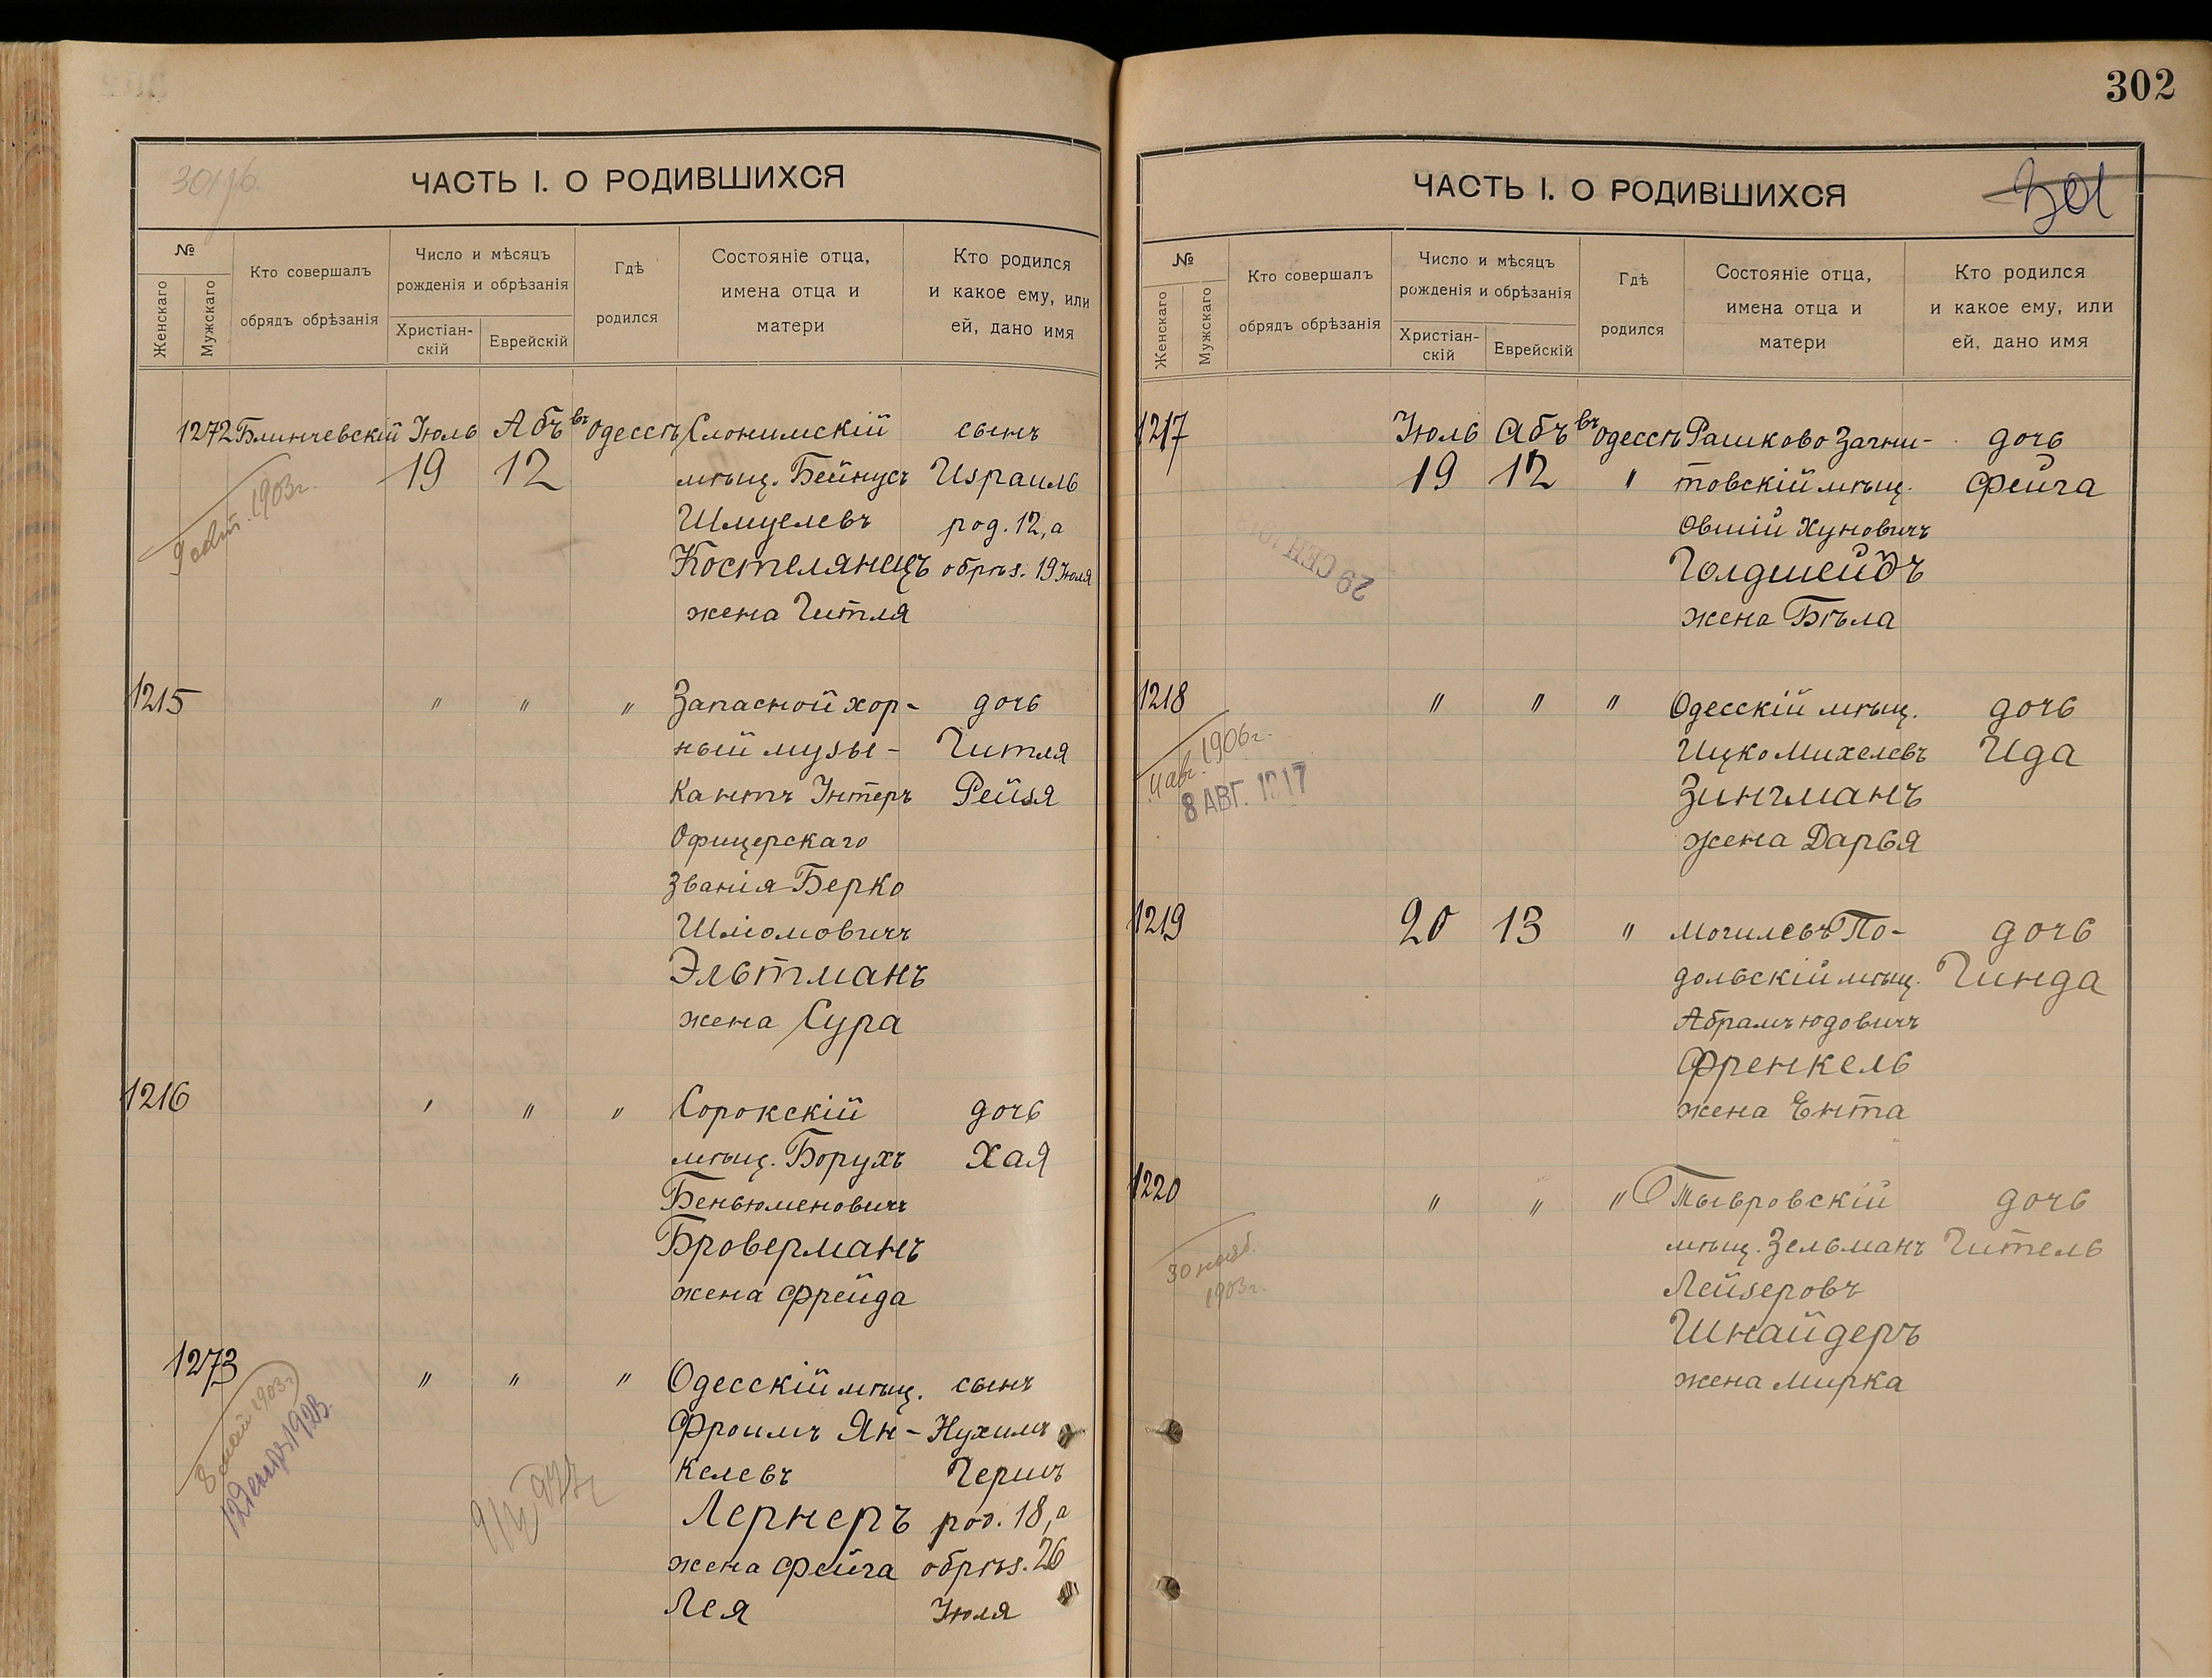 302
ЧАСТЬ I. О РОДИВШИХСЯ
№
Женскаго
Мужскаго
Кто совершалъ
обрядъ обрѣзанія
Число и мѣсяцъ
рожденія и обрѣзанія
Христіан-
скій
Еврейскій
Гдѣ
родился
Состояніе отца,
имена отца и
матери
Кто родился
и какое ему, или
ей, дано имя
1272 Блинчевскій Іюль Абъ въ Одессѣ Слонимскій сынъ
19 12 мѣщ. Бейнусъ Израиль
Шмуелевъ род. 12, а
Костелянецъ обрѣз. 19 Іюля
жена Гитля
9 1903г.
1215 " " " Запасной хор- дочь
ный музы- Гитля
кантъ Унтеръ Рейзя
Офицерскаго
званія Берко
Шліомовичъ
Эльтманъ
жена Сура
1216 " " " Сорокскій дочь
мѣщ. Борухъ Хая
Беньюменовичъ
Броверманъ
жена Фрейда
1273 " " " Одесскій мѣщ. сынъ
Фроимъ Ян- Нухимъ
келевъ Гершъ
Лернеръ род. 18, а
жена Фейга обрѣз. 26
Лея Іюля
1903г.
ЧАСТЬ I. О РОДИВШИХСЯ
301
№
Женскаго
Мужскаго
Кто совершалъ
обрядъ обрѣзанія
Число и мѣсяцъ
рожденія и обрѣзанія
Христіан-
скій
Еврейскій
Гдѣ
родился
Состояніе отца,
имена отца и
матери
Кто родился
и какое ему, или
ей, дано имя
1217 Іюль Абъ въ Одессѣ Рашково Загни- дочь
19 12 " товскій мѣщ. Фейга
Овшій Хуновичъ
Голдшейдъ
жена Бѣла
29 СЕН
1218 " " " Одесскій мѣщ. дочь
Ицко Михелевъ Ида
Зингманъ
жена Дарья
4 авг. 1906г.
8 АВГ. 1917
1219 20 13 " Могилевъ По- дочь
дольскій мѣщ. Гинда
Абрамъ Юдовичъ
Френкель
жена Ента
1220 " " " Тывровскій дочь
мѣщ. Зельманъ Гитель
Лейзеровъ
Шнайдеръ
жена Мирка
30 нояб.
1903г.